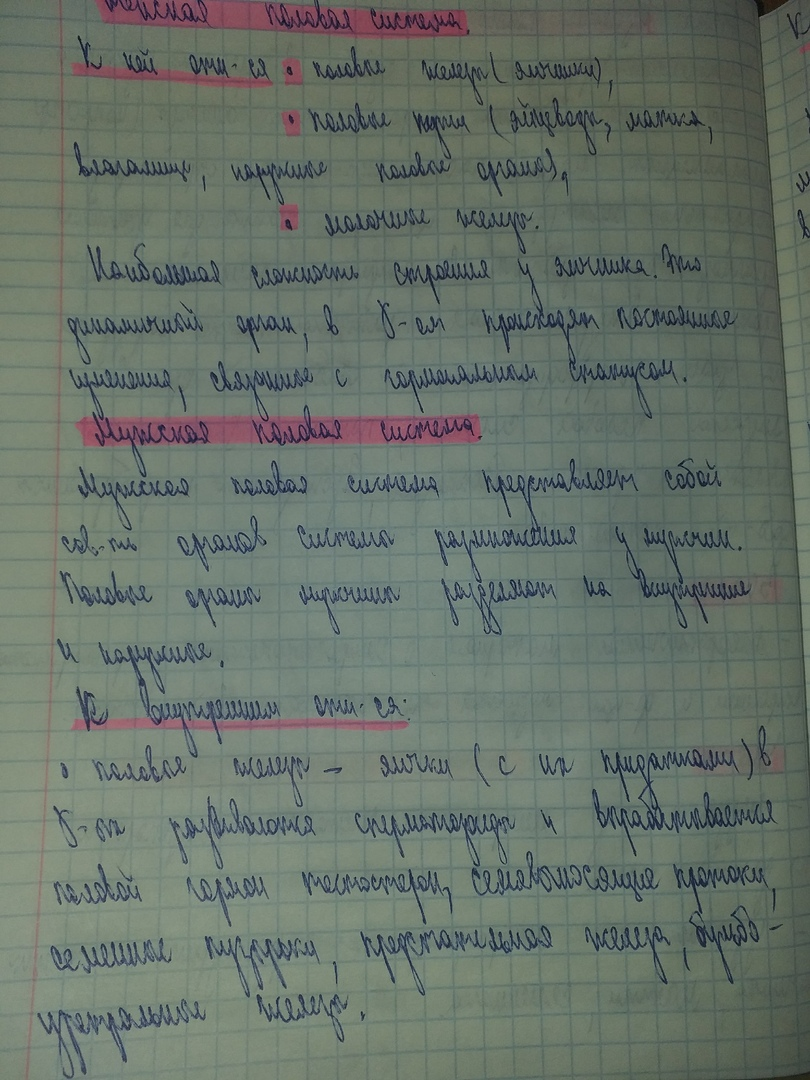 Женская половая система.
К ней отн-ся • половые железы (яичники),
• половые пути (яйцеводы, матка,
влагалище, наружные половые органы),
• молочные железы.
Наибольшая сложность строения у яичника. Это
динамичный орган, в к-ом происходят постоянные
изменения, связанные с гормональным статусом.
Мужская половая система.
Мужская половая система представляет собой
сов-ть органов системы размножения у мужчин.
Половые органы мужчины разделяют на внутренние
и наружные.
К внутренним отн-ся:
• половые железы – яички (с их придатками) в
к-ых развиваются сперматозоиды и вырабатывается
половой гормон тестостерон, семявыносящие протоки,
семенные пузырьки, предстательная железа, бульбо-
уретральные железы.